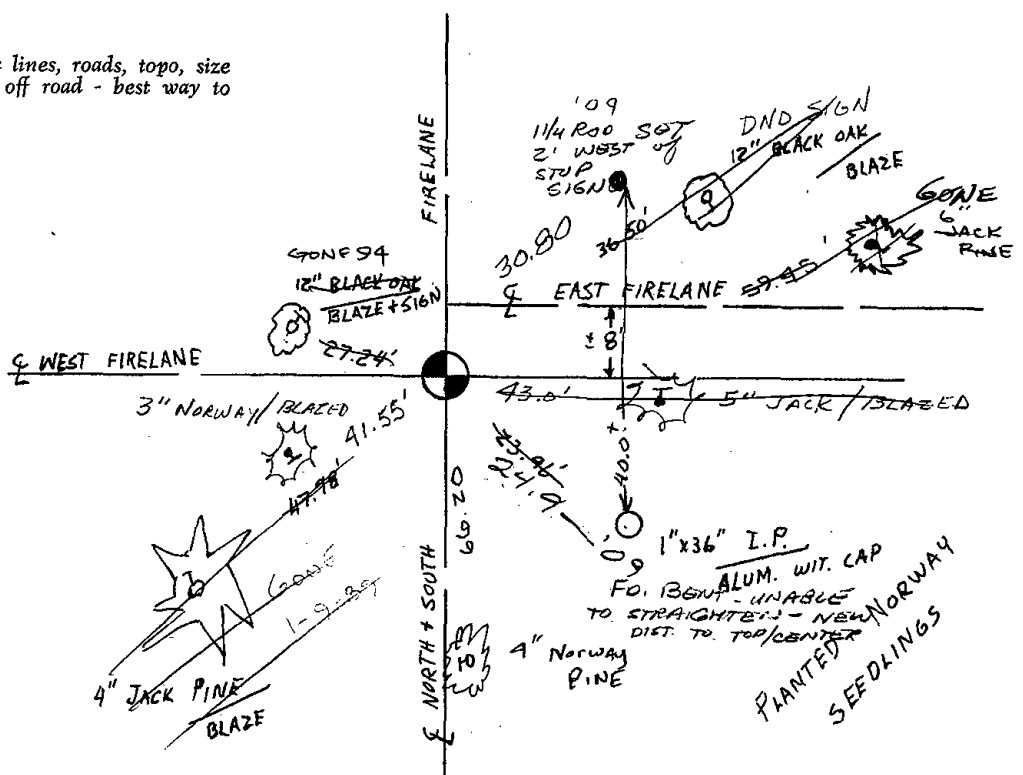 lines, roads, topo, size
off road - best way to
FIRELANE
'09
1 1/4 ROD SET
2' WEST of
STOP
SIGN
DND SIGN
12" BLACK OAK
BLAZE
GONE
6"
JACK
PINE
59.45'
36.50'
30.80
GONE 94
12" BLACK OAK
BLAZE + SIGN
27.24'
℄ EAST FIRELANE
± 8'
℄ WEST FIRELANE
43.0'
5" JACK / BLAZED
3" NORWAY / BLAZED
41.55'
47.98'
23.96'
24.9
40.0 ±
69.20
1"x36" I.P.
ALUM. WIT. CAP
FD. BENT - UNABLE
TO STRAIGHTEN - NEW
DIST. TO TOP/CENTER
GONE
4" JACK PINE
BLAZE
℄ NORTH + SOUTH
4" NORWAY
PINE
PLANTED NORWAY
SEEDLINGS